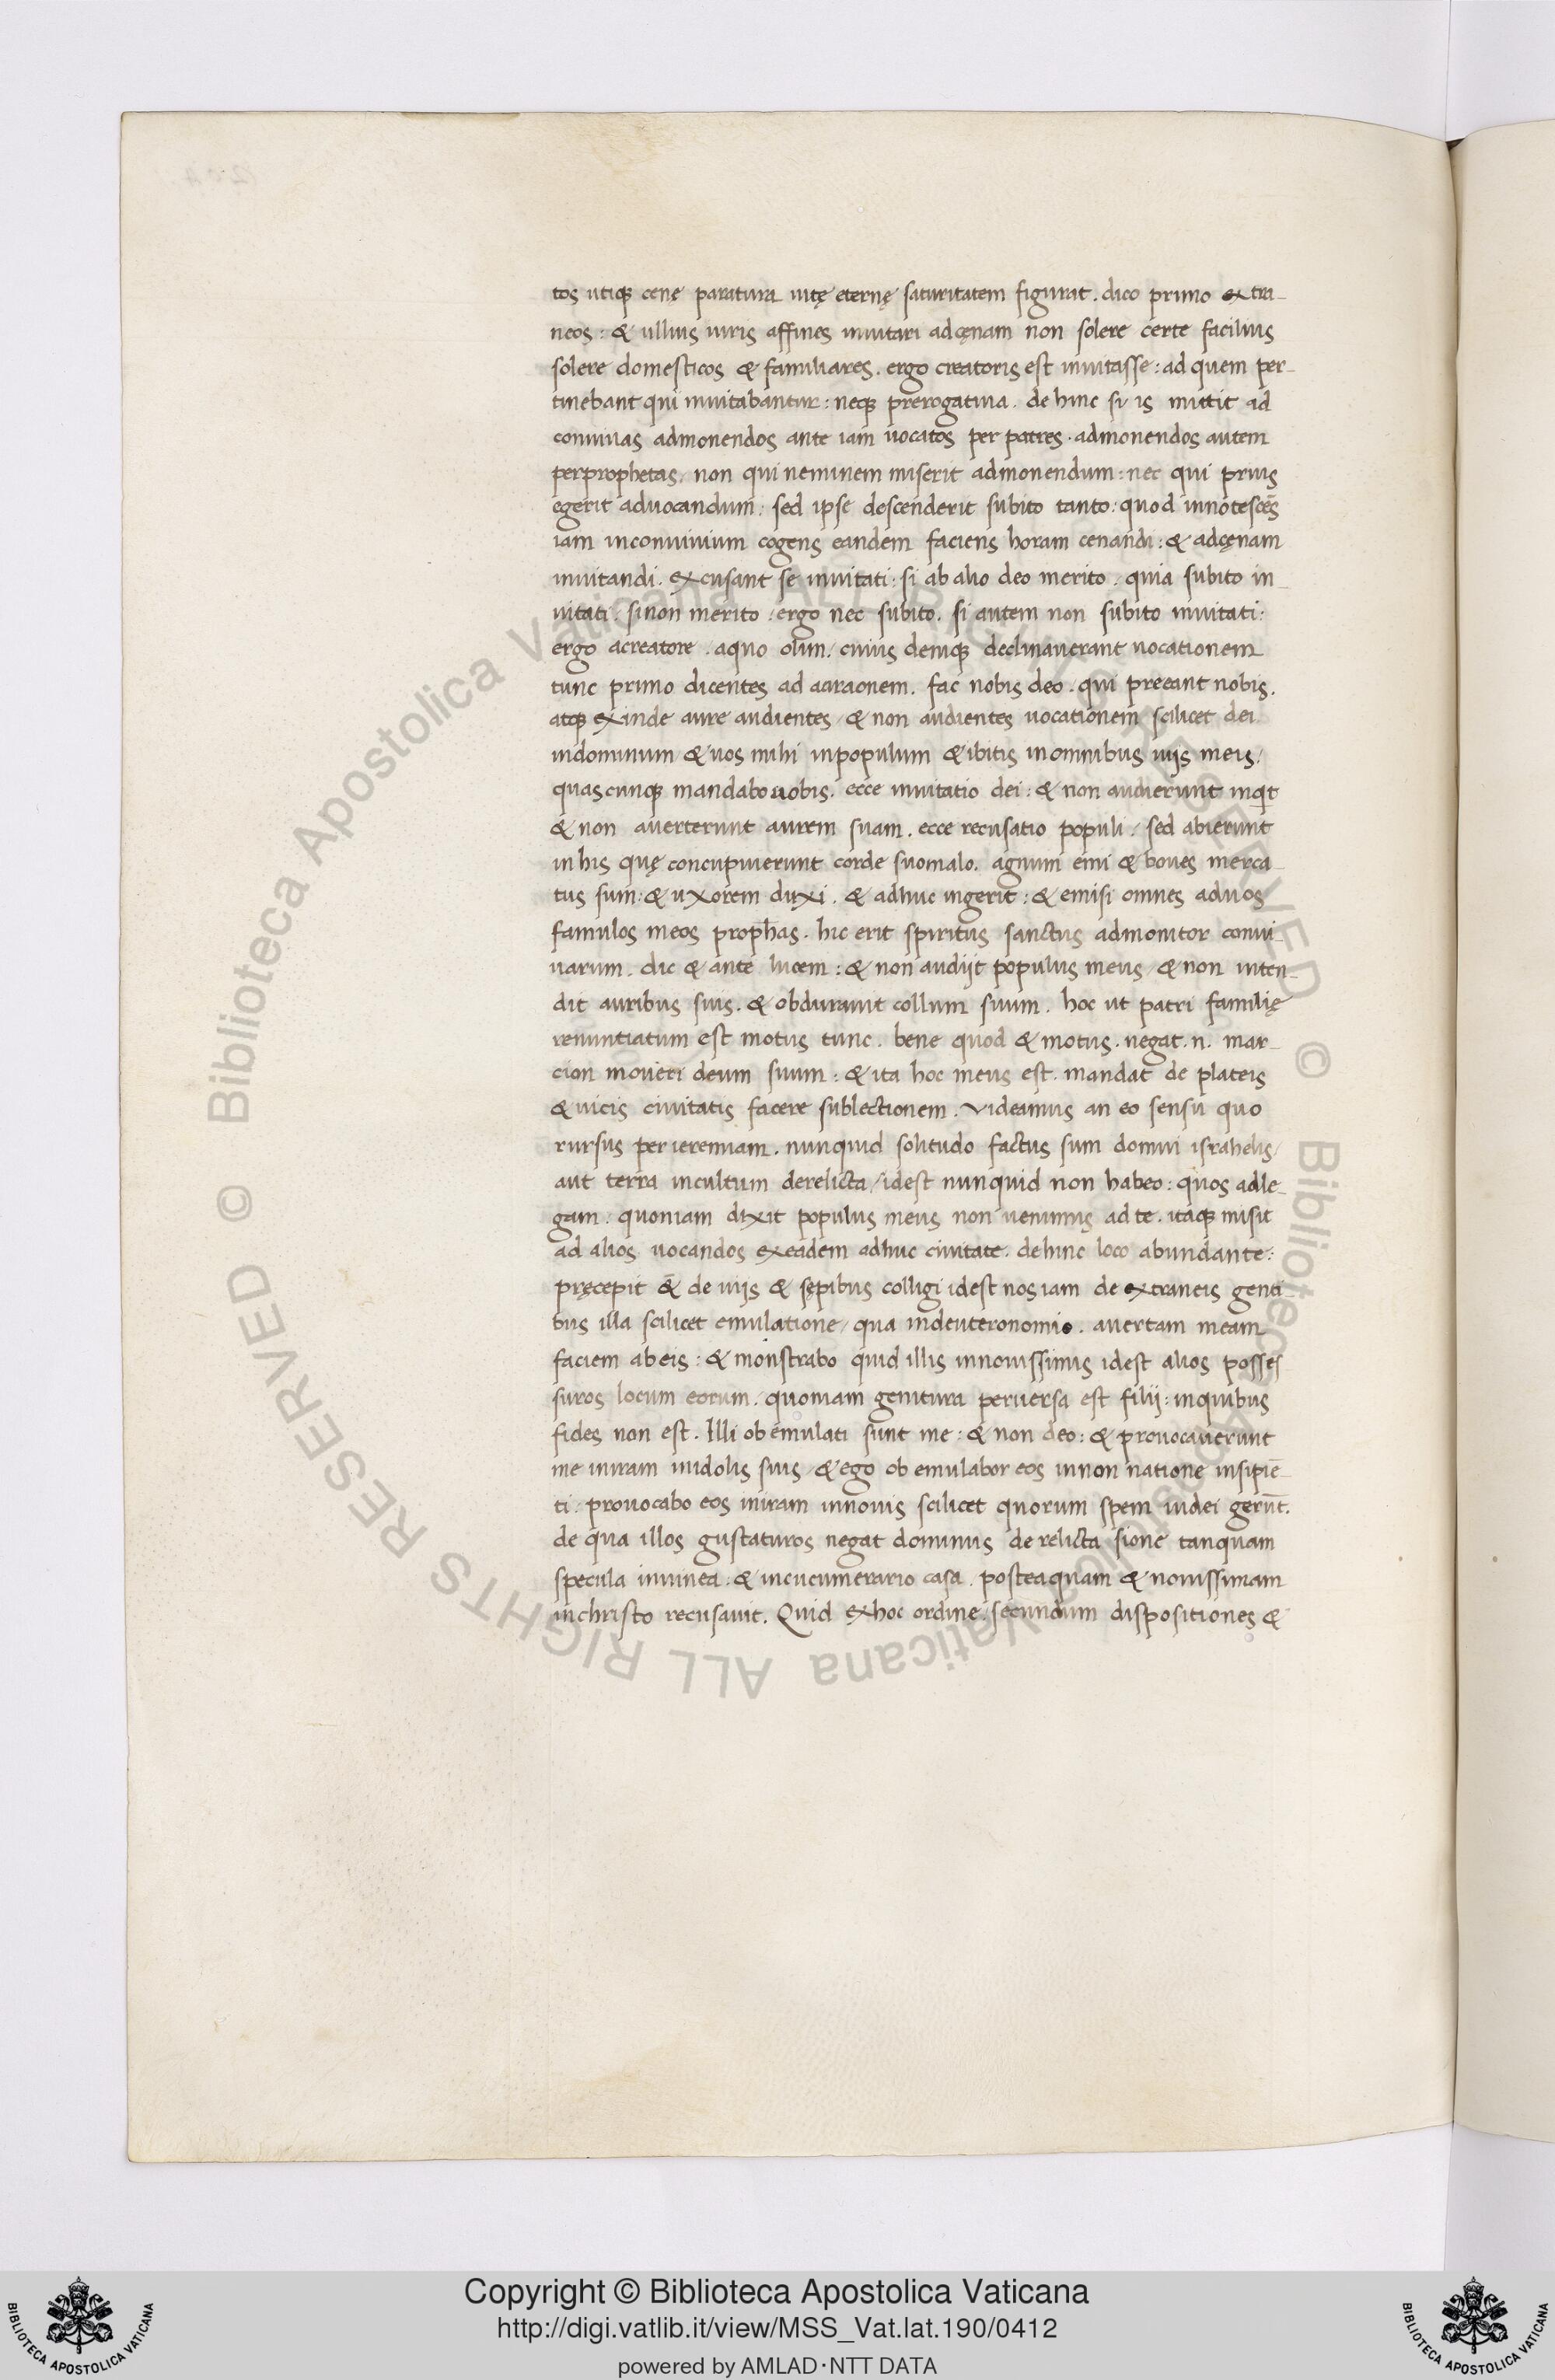 tos utiq; cenę paratura uitę eternę saturitatem figurat. dico primo extra-
neos: & ullius iuris affines inuitari adcęnam non solere certe facilius
solere domesticos & familiares. ergo creatoris est inuitasse: ad quem per-
tinebant qui inuitabantur: neq; prerogatiua. de hinc si is mittit ad
conuiuas admonendos ante iam uocatos per patres. admonendos autem
perprophetas. non qui neminem miserit admonendum: nec qui prius
egerit aduocandum: sed ipse descenderit subito tanto: quod innotescēs
iam inconuiuium cogens eandem faciens horam cenandi: & adcęnam
inuitandi. excusant se inuitati: si ab alio deo merito. quia subito in-
uitati. sinon merito: ergo nec subito. si autem non subito inuitati:
ergo acreatore. aquo olim. cuius deniq; declinauerant uocationem
tunc primo dicentes ad aaraonem. fac nobis deo. qui preeant nobis.
atq; exinde aure audientes / & non audientes uocationem scilicet dei
indominum & uos mihi inpopulum & ibitis in omnibus uijs meis /
quascunq; mandabo uobis. ecce inuitatio dei: & non audierunt inqt
& non auerterunt aurem suam. ecce recusatio populi / sed abierunt
in his quę concupiuerunt corde suomalo. agnum emi & boues merca-
tus sum: & uxorem duxi. & adhuc ingerit: & emisi omnes aduos
famulos meos prophas. hic erit spiritus sanctus admonitor conui-
uarum. dic & ante lucem: & non audijt populus meus / & non inten-
dit auribus suis. & obdurauit collum suum. hoc ut patri familię
renuntiatum est motus tunc. bene quod & motus. negat. n. mar-
cion moueri deum suum: & ita hoc meus est. mandat de plateis
& uicis ciuitatis facere sublectionem. Videamus an eo sensu quo
rursus per ieremiam. nunquid solitudo factus sum domui israhelis /
aut terra incultum derelicta / idest nunquid non habeo: quos adle-
gam. quoniam dixit populus meus non uenimus ad te. itaq; misit
ad alios uocandos exeadem adhuc ciuitate. dehinc loco abundante:
pręcepit & de uijs & sępibus colligi idest nos iam de extraneis genti-
bus illa scilicet emulatione / qua indeuteronomio. auertam meam
faciem ab eis: & monstrabo quid illis innouissimis idest alios posses-
suros locum eorum. quoniam genitura peruersa est filij: inquibus
fides non est. Illi ob emulati sunt me: & non deo: & prouocauerunt
me iniram inidolis suis / & ego ob emulabor eos innon natione insipiē-
ti: prouocabo eos iniram innouis scilicet quorum spem iudei gerūt.
de qua illos gustaturos negat dominus derelicta sione tanquam
specula inuinea: & incucumerario casa. posteaquam & nouissimam
inchristo recusauit. Quid exhoc ordine. secundum dispositiones &
Copyright © Biblioteca Apostolica Vaticana
http://digi.vatlib.it/view/MSS_Vat.lat.190/0412
powered by AMLAD·NTT DATA
BIBLIOTECA APOSTOLICA VATICANA
BIBLIOTECA APOSTOLICA VATICANA
© Biblioteca Apostolica Vaticana ALL RIGHTS RESERVED
© Biblioteca Apostolica Vaticana ALL RIGHTS RESERVED